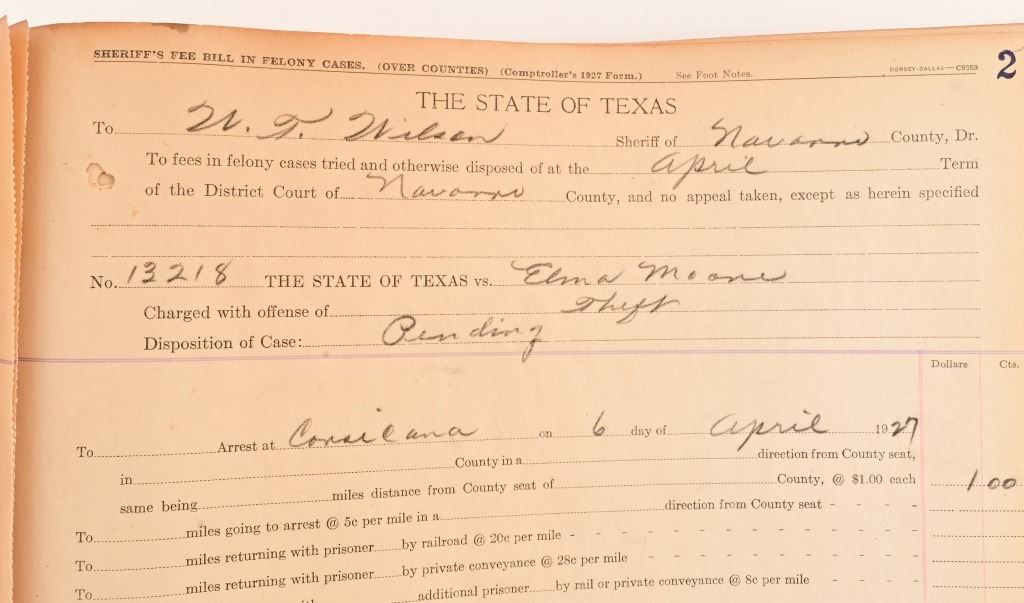 SHERIFF'S FEE BILL IN FELONY CASES. (OVER COUNTIES) (Comptroller's 1927 Form.) See Foot Notes. DORSEY-DALLAS—C5953 2
THE STATE OF TEXAS
To W. T. Wilson Sheriff of Navarro County, Dr.
To fees in felony cases tried and otherwise disposed of at the April Term
of the District Court of Navarro County, and no appeal taken, except as herein specified
No. 13218 THE STATE OF TEXAS vs. Elma Moore
Charged with offense of Theft
Disposition of Case: Pending
Dollars Cts.
To Arrest at Corsicana on 6 day of April 1927
in County in a direction from County seat,
same being miles distance from County seat of County, @ $1.00 each 1 00
To miles going to arrest @ 5c per mile in a direction from County seat - - - -
To miles returning with prisoner by railroad @ 20c per mile - - - - - - - - - - -
To miles returning with prisoner by private conveyance @ 28c per mile - - - - - - - - -
To additional prisoner by rail or private conveyance @ 8c per mile - - - -